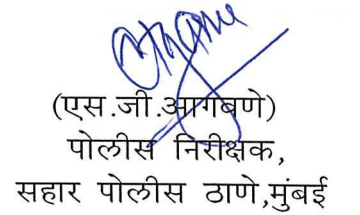 (एस.जी.आगबणे)
पोलीस निरीक्षक,
सहार पोलीस ठाणे,मुंबई